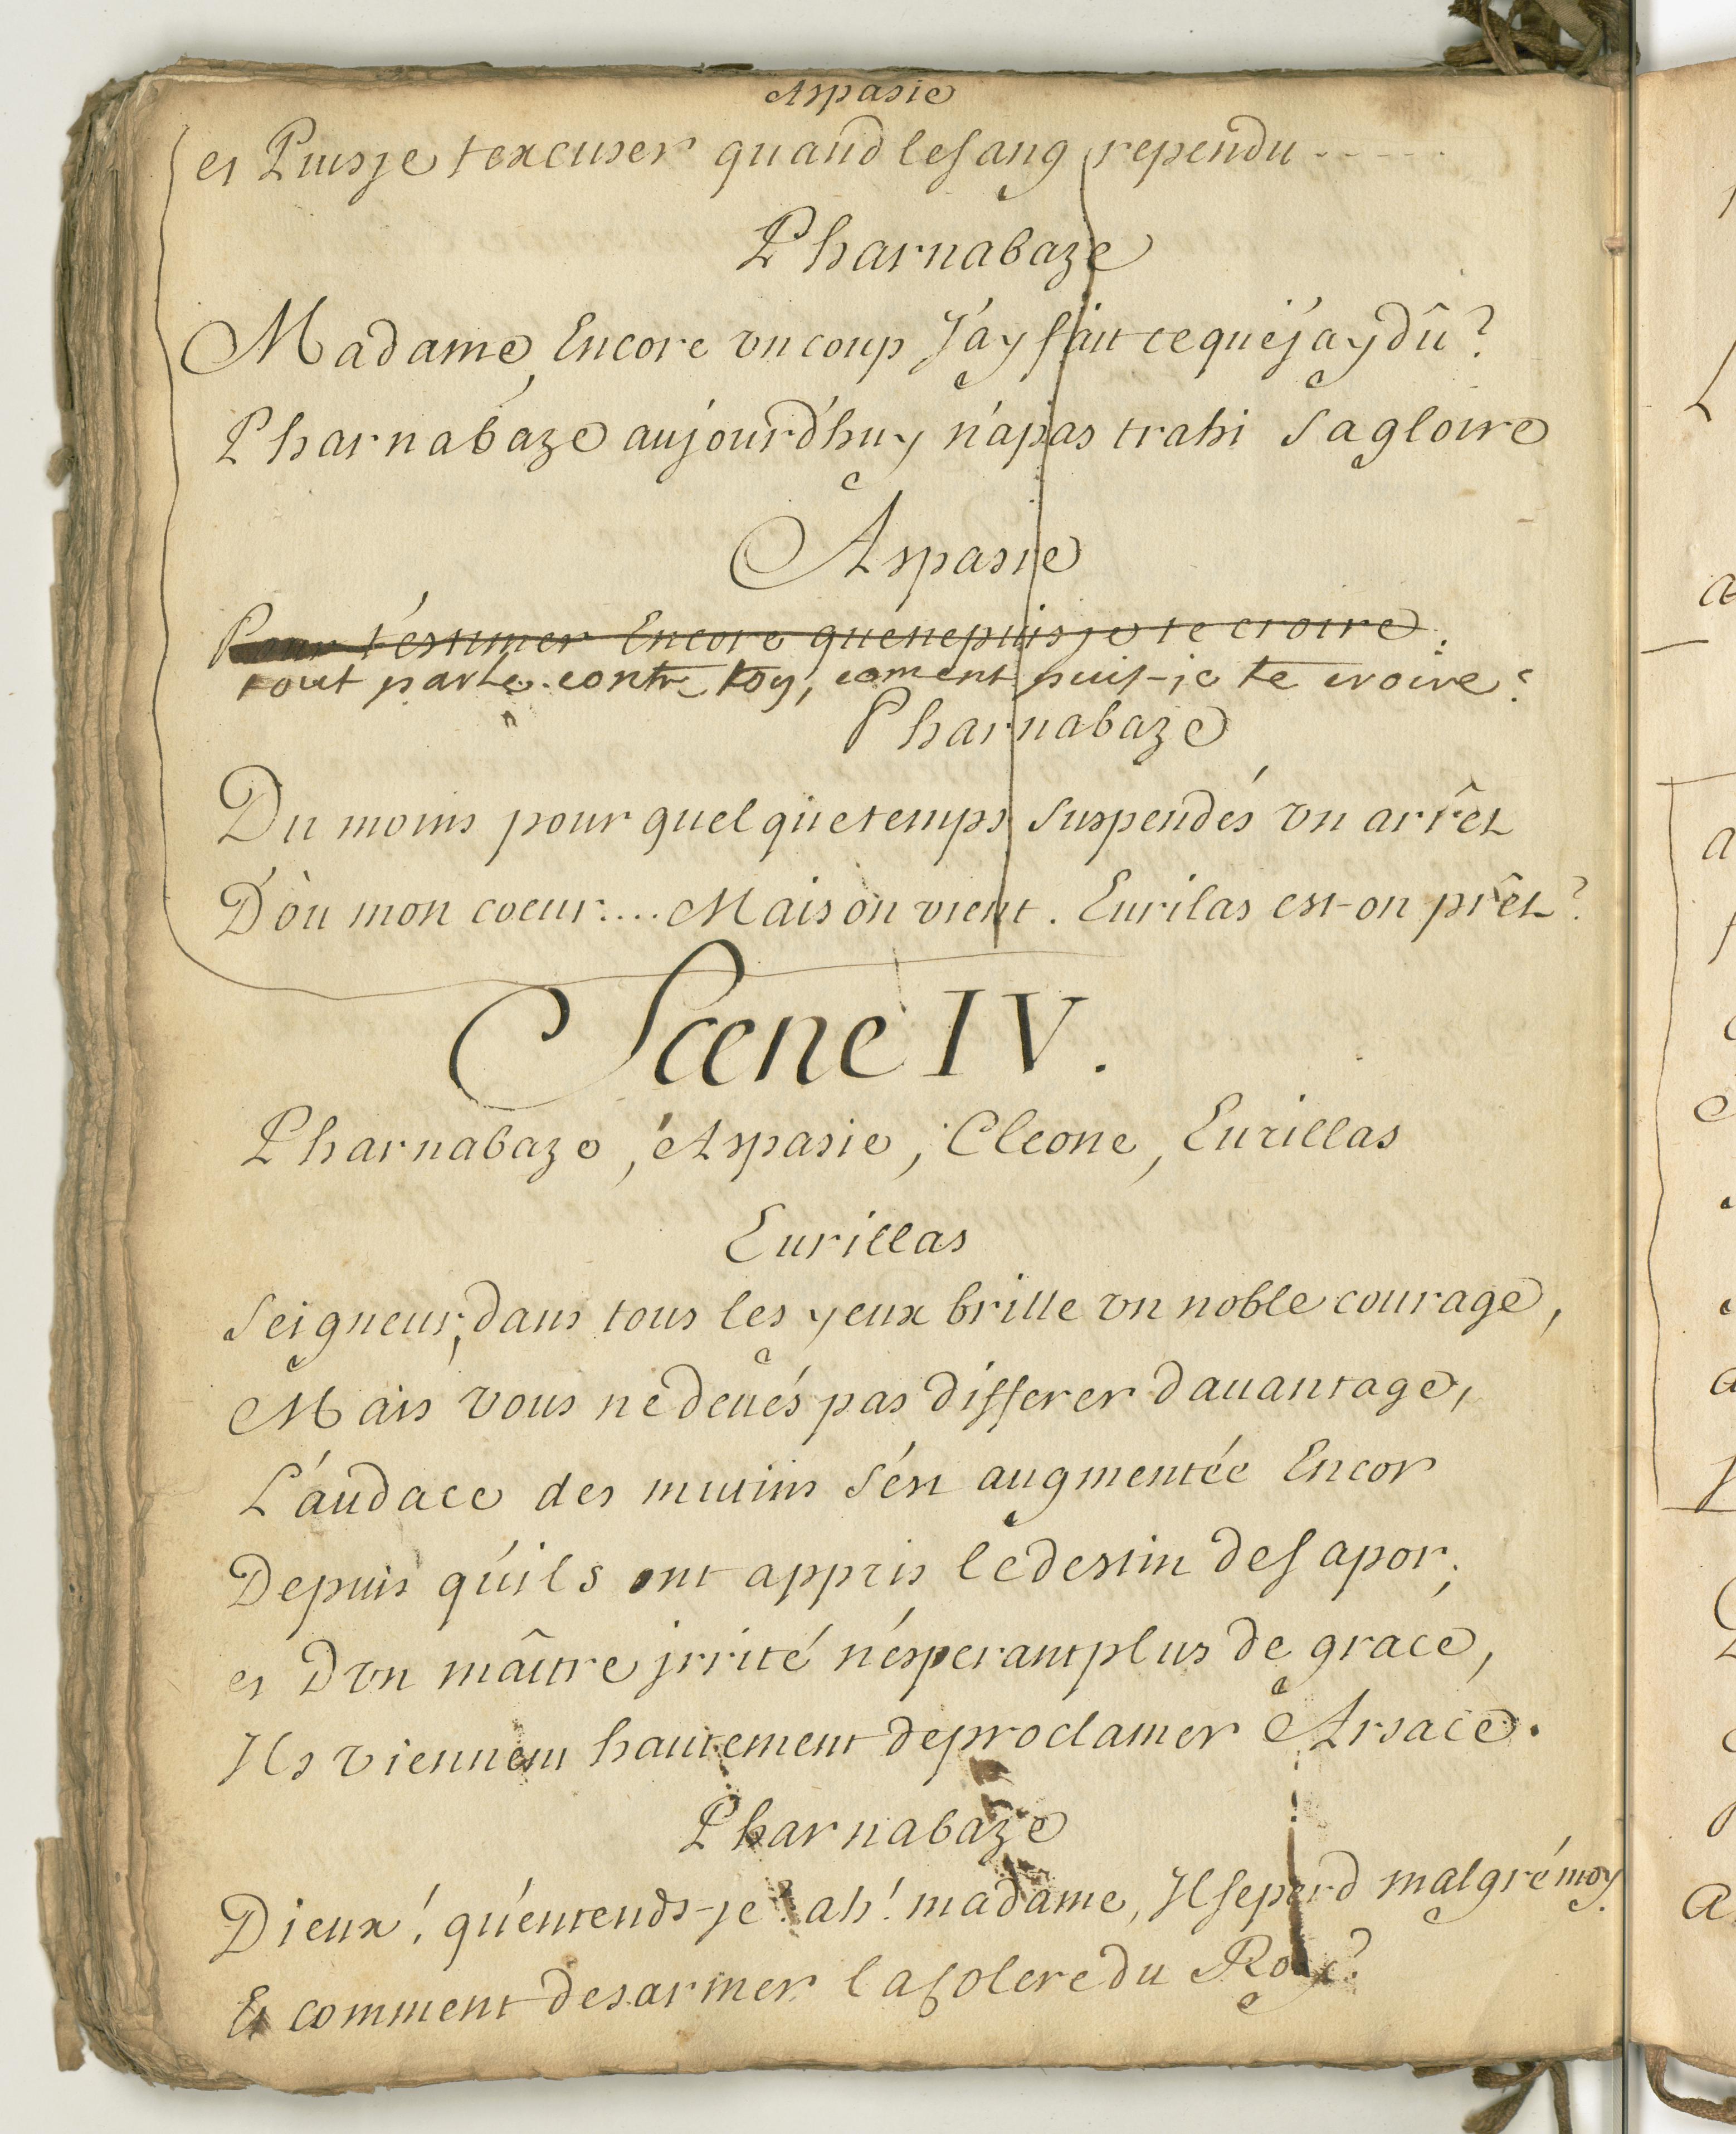 Aspasie
et Puisje t'excuser quand le sang rependu - - - - -
Pharnabaze
Madame, Encore vn coup J'ay fait ce que j'ay dû?
Pharnabaze aujourd'huy n'a pas trahi Sa gloire
Aspasie
Pour t'estimer Encore que ne puis je te croire.
tout parle contre toy, coment puis-je te croire?
Pharnabaze
Du moins pour quelque temps suspendés vn arrêt
D'où mon coeur.... Mais on vient. Eurilas est-on prêt?
Scene IV.
Pharnabaze, Aspasie, Cleone, Eurillas
Eurillas
Seigneur, dans tous les yeux brille vn noble courage,
Mais vous ne deués pas differer dauantage,
L'audace des mutins s'est augmentée Encor
Depuis qu'ils ont appris le destin de Sapor;
et D'vn maître jrrité n'ésperant plus de grace,
Ils viennent hautement de proclamer Arsace.
Pharnabaze
Dieux! qu'entends-je? ah! madame, Il se perd malgré moy.
Et comment desarmer la colere du Roy?